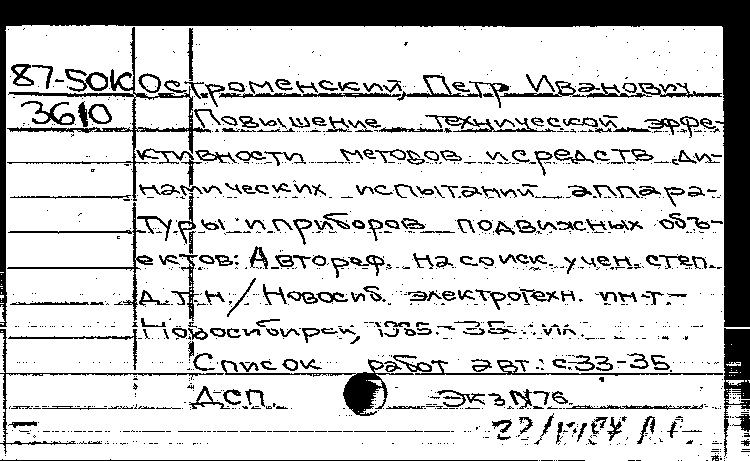 87-50К Остроменский, Петр Иванович
3610 Повышение технической эффе-
ктивности методов и средств ди-
намических испытаний аппара-
туры и приборов подвижных объ-
ектов: Автореф. на соиск. учен. степ.
д.т.н./ Новосиб. электротехн. ин-т.-
Новосибирск, 1985.-35с. ил.
Список работ авт.: с.33-35
ДСП. Экз N76